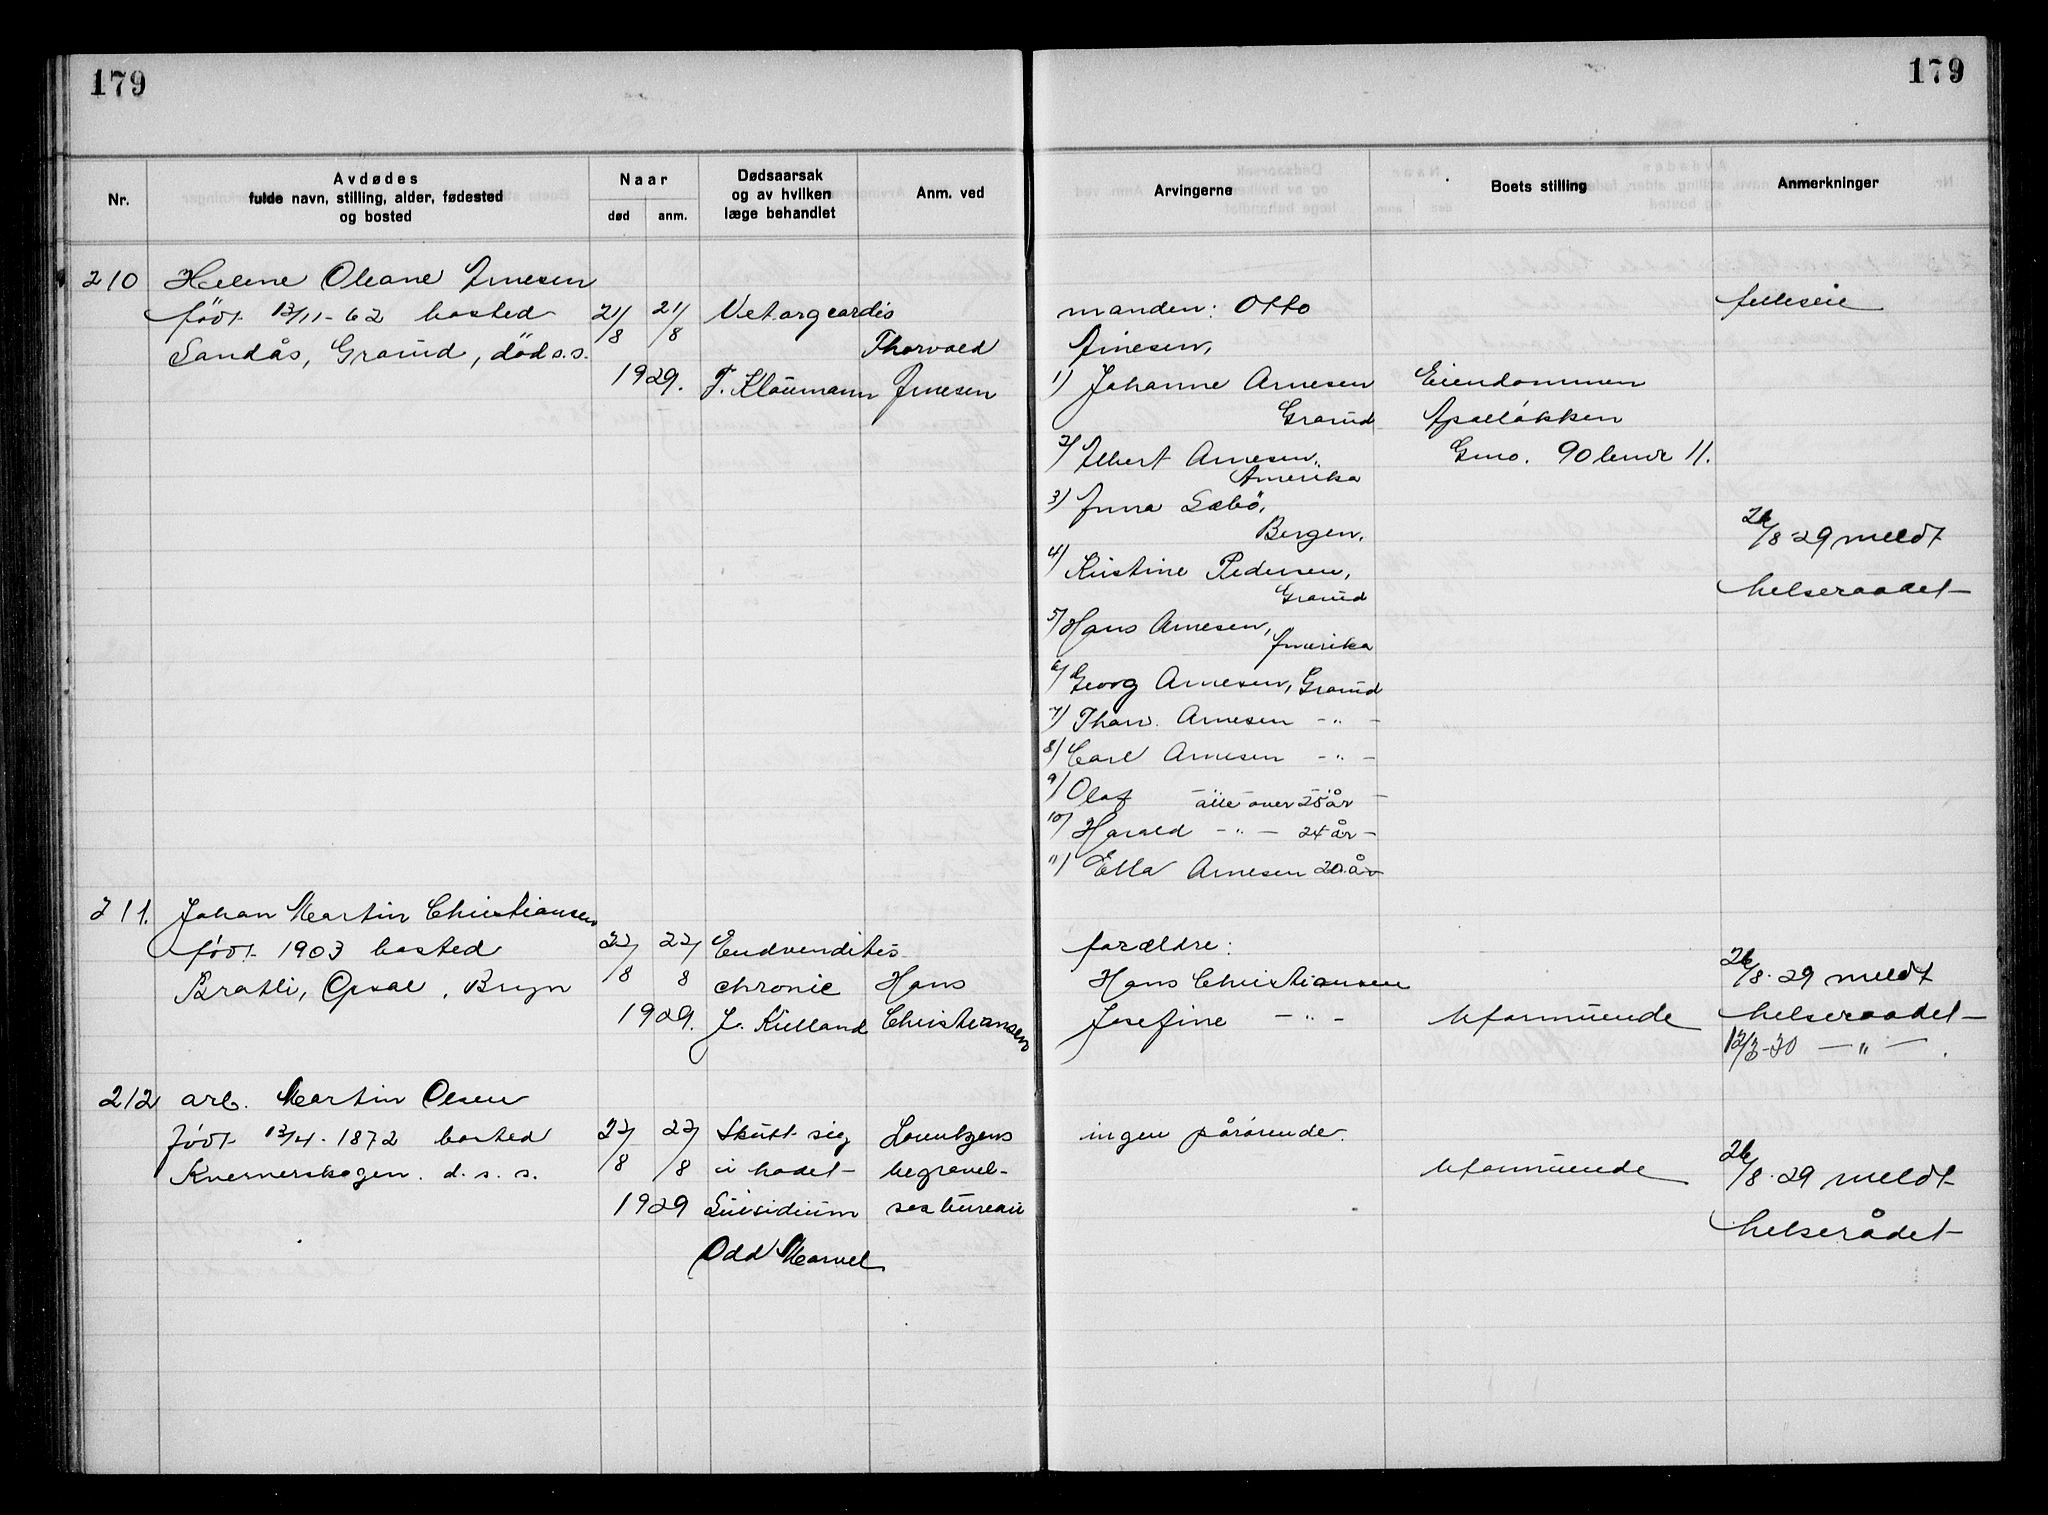 179
179
Nr.
Avdødes
fulde navn, stilling, alder, fødested
og bosted
Naar
død
anm.
Dødsaarsak
og av hvilken
læge behandlet
Anm. ved
Arvingerne
Boets stilling
Anmerkninger
210 Helene Oleane Arnesen
født 13/11-62 bosted
Sandås, Grorud, död s.s.
21/8 21/8
1929.
Vet. org cordis
T. Klaumann
Thorvald
Arnesen
manden: Otto
Arnesen,
1) Johanne Arnesen
Grorud
2) Albert Arnesen,
Amerika
3) Anna Sæbö,
Bergen,
4) Kristine Pedersen,
Grorud
5) Hans Arnesen,
Amerika
6) Georg Arnesen, Grorud
7) Thorv. Arnesen -"-
8) Carl Arnesen -"-
9) Olaf alle over 25 år
10) Harald -"- 24 år
11) Ella Arnesen 20 år
Eiendommen
Apalløkken
Gno. 90 bnr 11.
felleseie
26/8-29 meldt
helseraadet
211. Johan Martin Christiansen
født 1903 bosted
Bratli, Opsal, Bryn
22/8 22/8
1929.
chronic
J. Kielland
Hans
Christiansen
forældre:
Hans Christiansen
Josefine -"-
Uformuende
26/8-29 meldt
helseraadet
12/3-30 -"-
212 arb. Martin Olsen
født 13/4-1872 bosted
Kvernerskogen. d. s. s.
22/8 22/8
1929
Skutt sig
i hodet
Suisidium
Odd Marvel
Lorentzens
begravel-
sesbureau
ingen pårørende.
Uformuende
26/8-29 meldt
helserådet